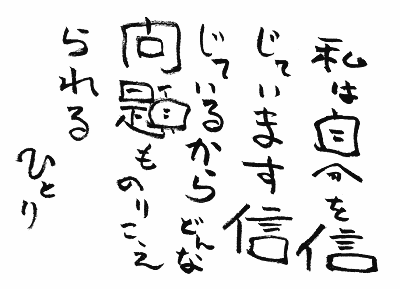 私は自分を信
じています信
じているからどんな
問題ものりこえ
られる
ひとり